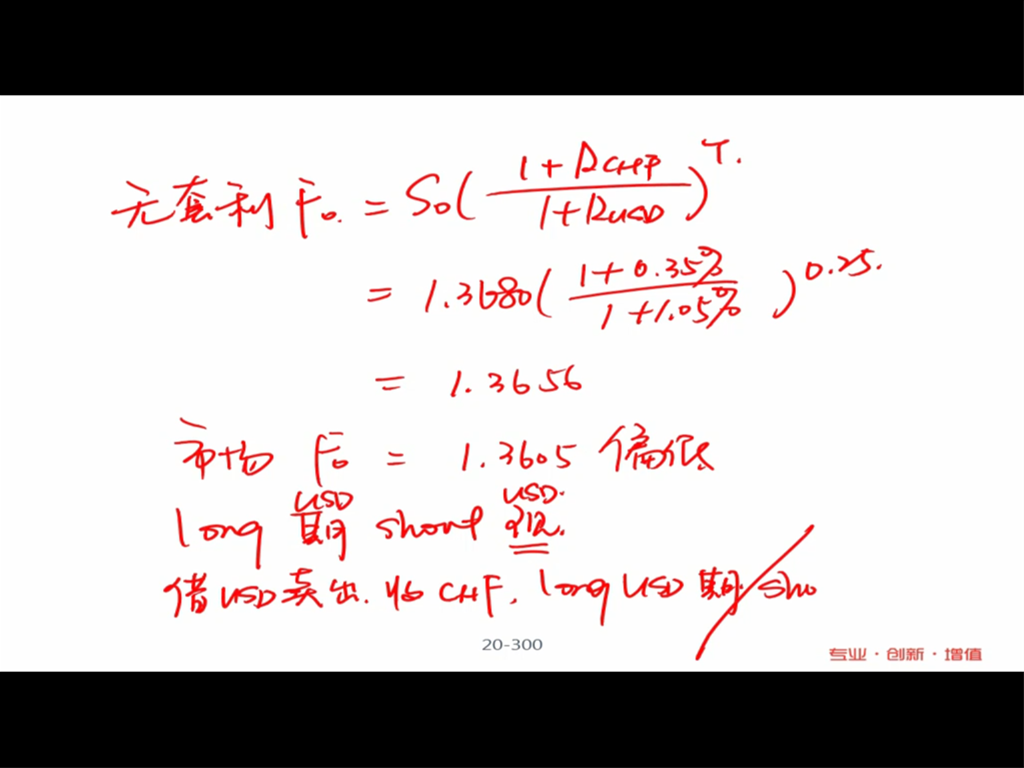 无套利 F₀ = S₀(\frac{1+R_{CHF}}{1+R_{USD}})^{T}.
= 1.3680(\frac{1+0.35%}{1+1.05%})^{0.25}.
= 1.3656
市场 F₀ = 1.3605 偏低
long USD 期 short USD. 现.
借 USD 卖出. 收 CHF, long USD 期 sho
20-300
专业·创新·增值